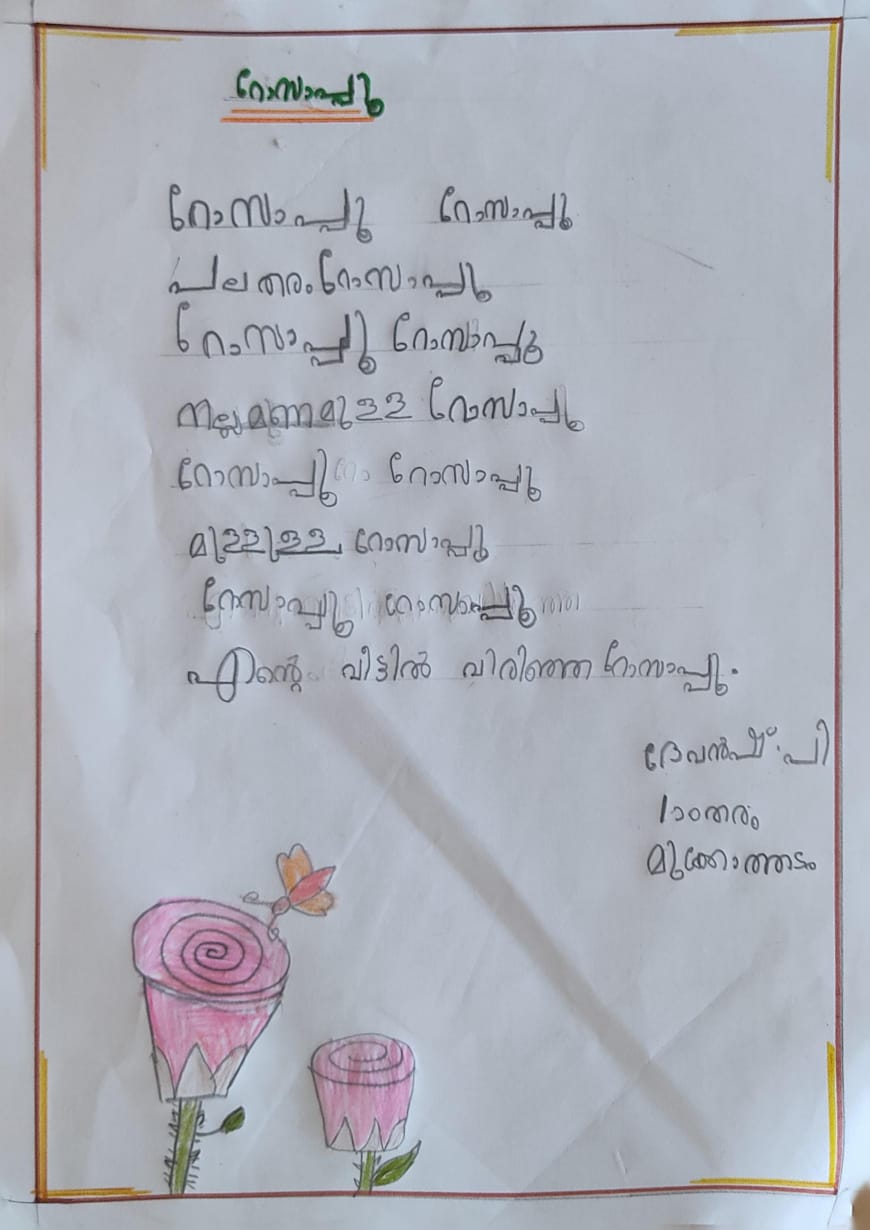 റോസാപ്പൂ
റോസാപ്പൂ റോസാപ്പൂ
പലതരം റോസാപ്പൂ
റോസാപ്പൂ റോസാപ്പൂ
നല്ലമണമുള്ള റോസാപ്പൂ
റോസാപ്പൂ റോസാപ്പൂ
മുള്ളുള്ള റോസാപ്പൂ
റോസാപ്പൂ റോസാപ്പൂ
എന്റെ വീട്ടിൽ വിരിഞ്ഞ റോസാപ്പൂ.
പി
1ാംതരം